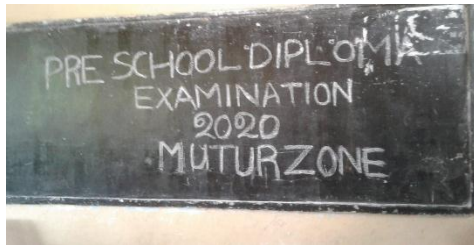 PRE SCHOOL DIPLOMA
EXAMINATION
2020
MUTURZONE